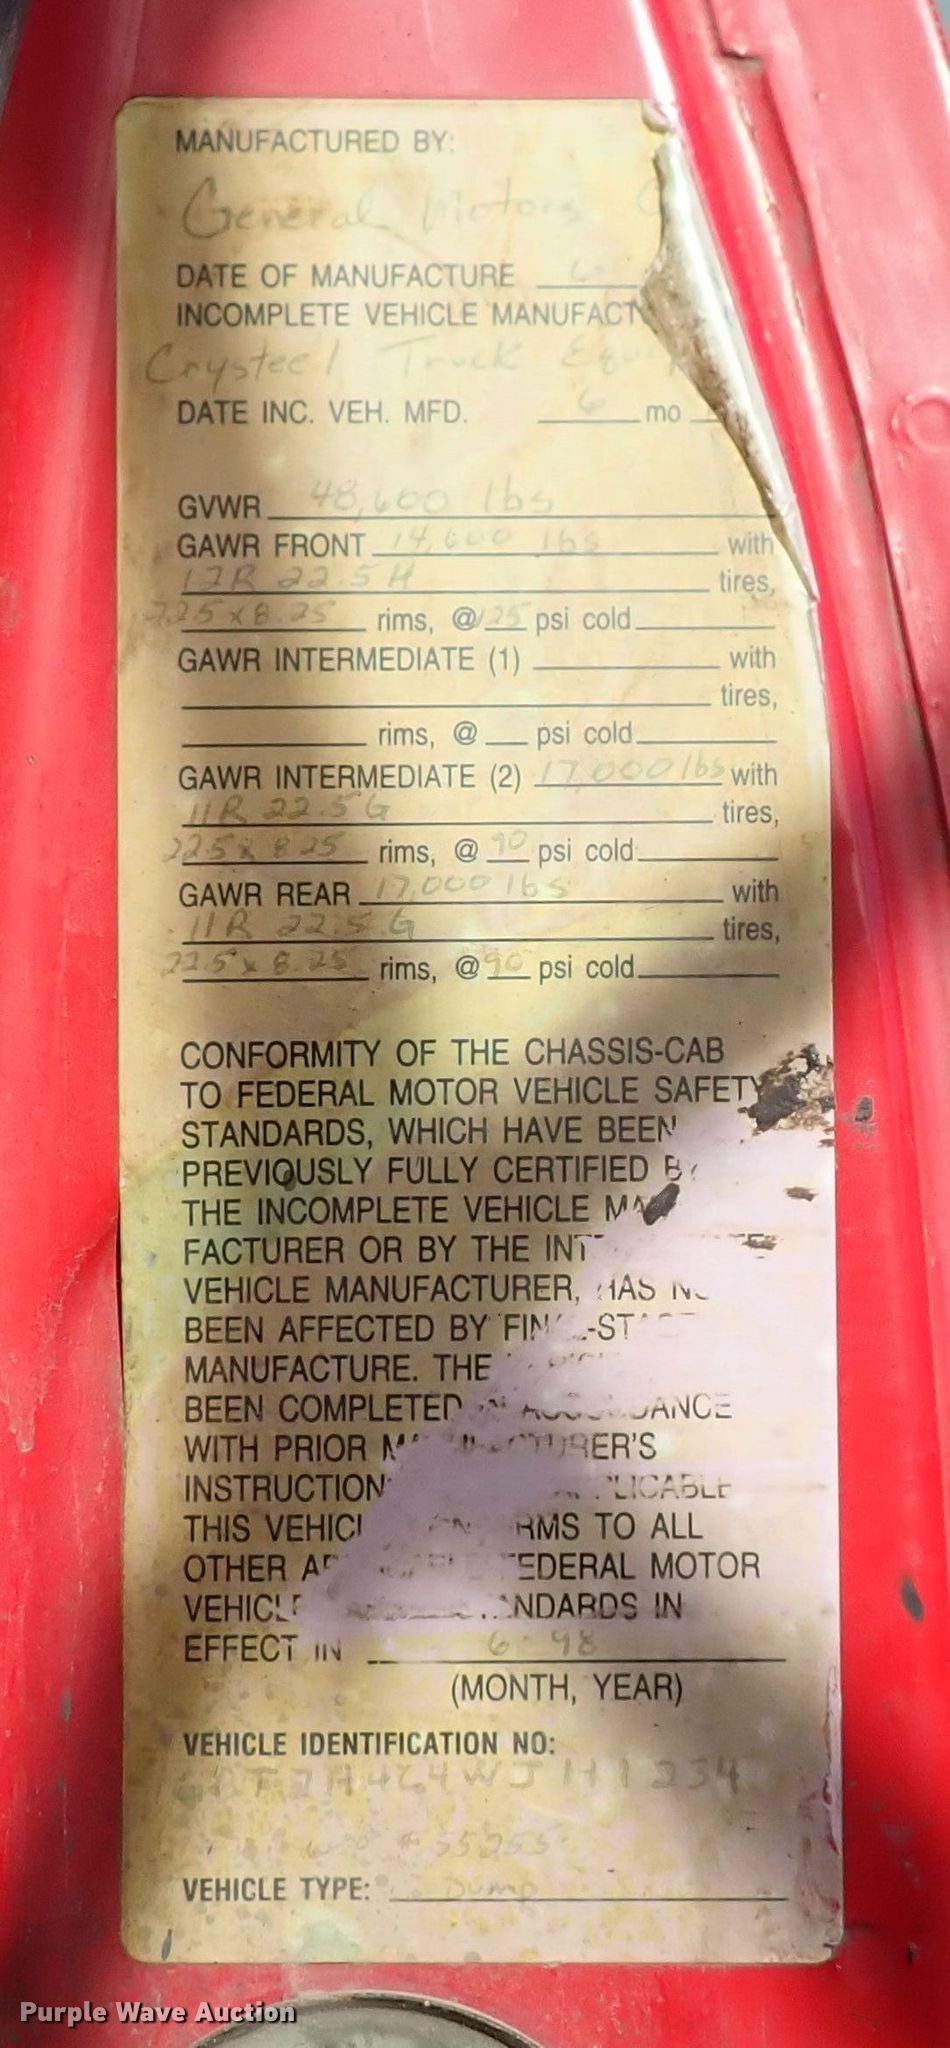 MANUFACTURED BY:
General Motors C
DATE OF MANUFACTURE 6
INCOMPLETE VEHICLE MANUFACT
Crysteel Truck Equi
DATE INC. VEH. MFD. 6 mo
GVWR 48,600 lbs
GAWR FRONT 14,600 lbs with
12R 22.5 H tires,
22.5 x 8.25 rims, @ 125 psi cold
GAWR INTERMEDIATE (1) with
tires,
rims, @ psi cold
GAWR INTERMEDIATE (2) 17,000 lbs with
11R 22.5 G tires,
22.5 x 8.25 rims, @ 90 psi cold
GAWR REAR 17,000 lbs with
11R 22.5 G tires,
22.5 x 8.25 rims, @ 90 psi cold
CONFORMITY OF THE CHASSIS-CAB
TO FEDERAL MOTOR VEHICLE SAFETY
STANDARDS, WHICH HAVE BEEN
PREVIOUSLY FULLY CERTIFIED BY
THE INCOMPLETE VEHICLE MA
FACTURER OR BY THE INT
VEHICLE MANUFACTURER, HAS NO
BEEN AFFECTED BY FINAL-STAGE
MANUFACTURE. THE
BEEN COMPLETED IN ACCORDANCE
WITH PRIOR MANUFACTURER'S
INSTRUCTION APPLICABLE
THIS VEHICL CONFORMS TO ALL
OTHER AP FEDERAL MOTOR
VEHICLE STANDARDS IN
EFFECT IN 6 98
(MONTH, YEAR)
VEHICLE IDENTIFICATION NO:
VEHICLE TYPE: Dump
Purple Wave Auction